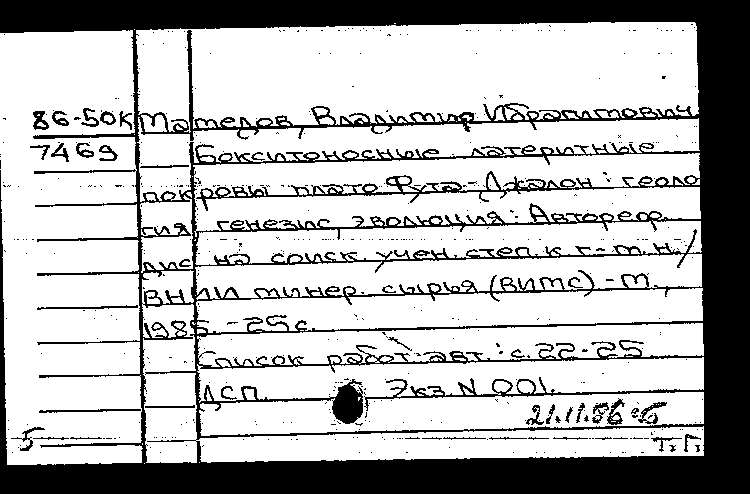 86-50К Мамедов, Владимир Ибрагимович
7469 Бокситоносные латеритные
покровы плато Фута-Джалон: геоло
гия, генезис, эволюция: Автореф.
дис на соиск учен. степ. к г.-м.н./
ВНИИ минер. сырья (ВИМС) - М.,
1985. - 25 с.
Список работ авт.: с. 22-25
ДСП. Экз. N 001.
21.11.86
5